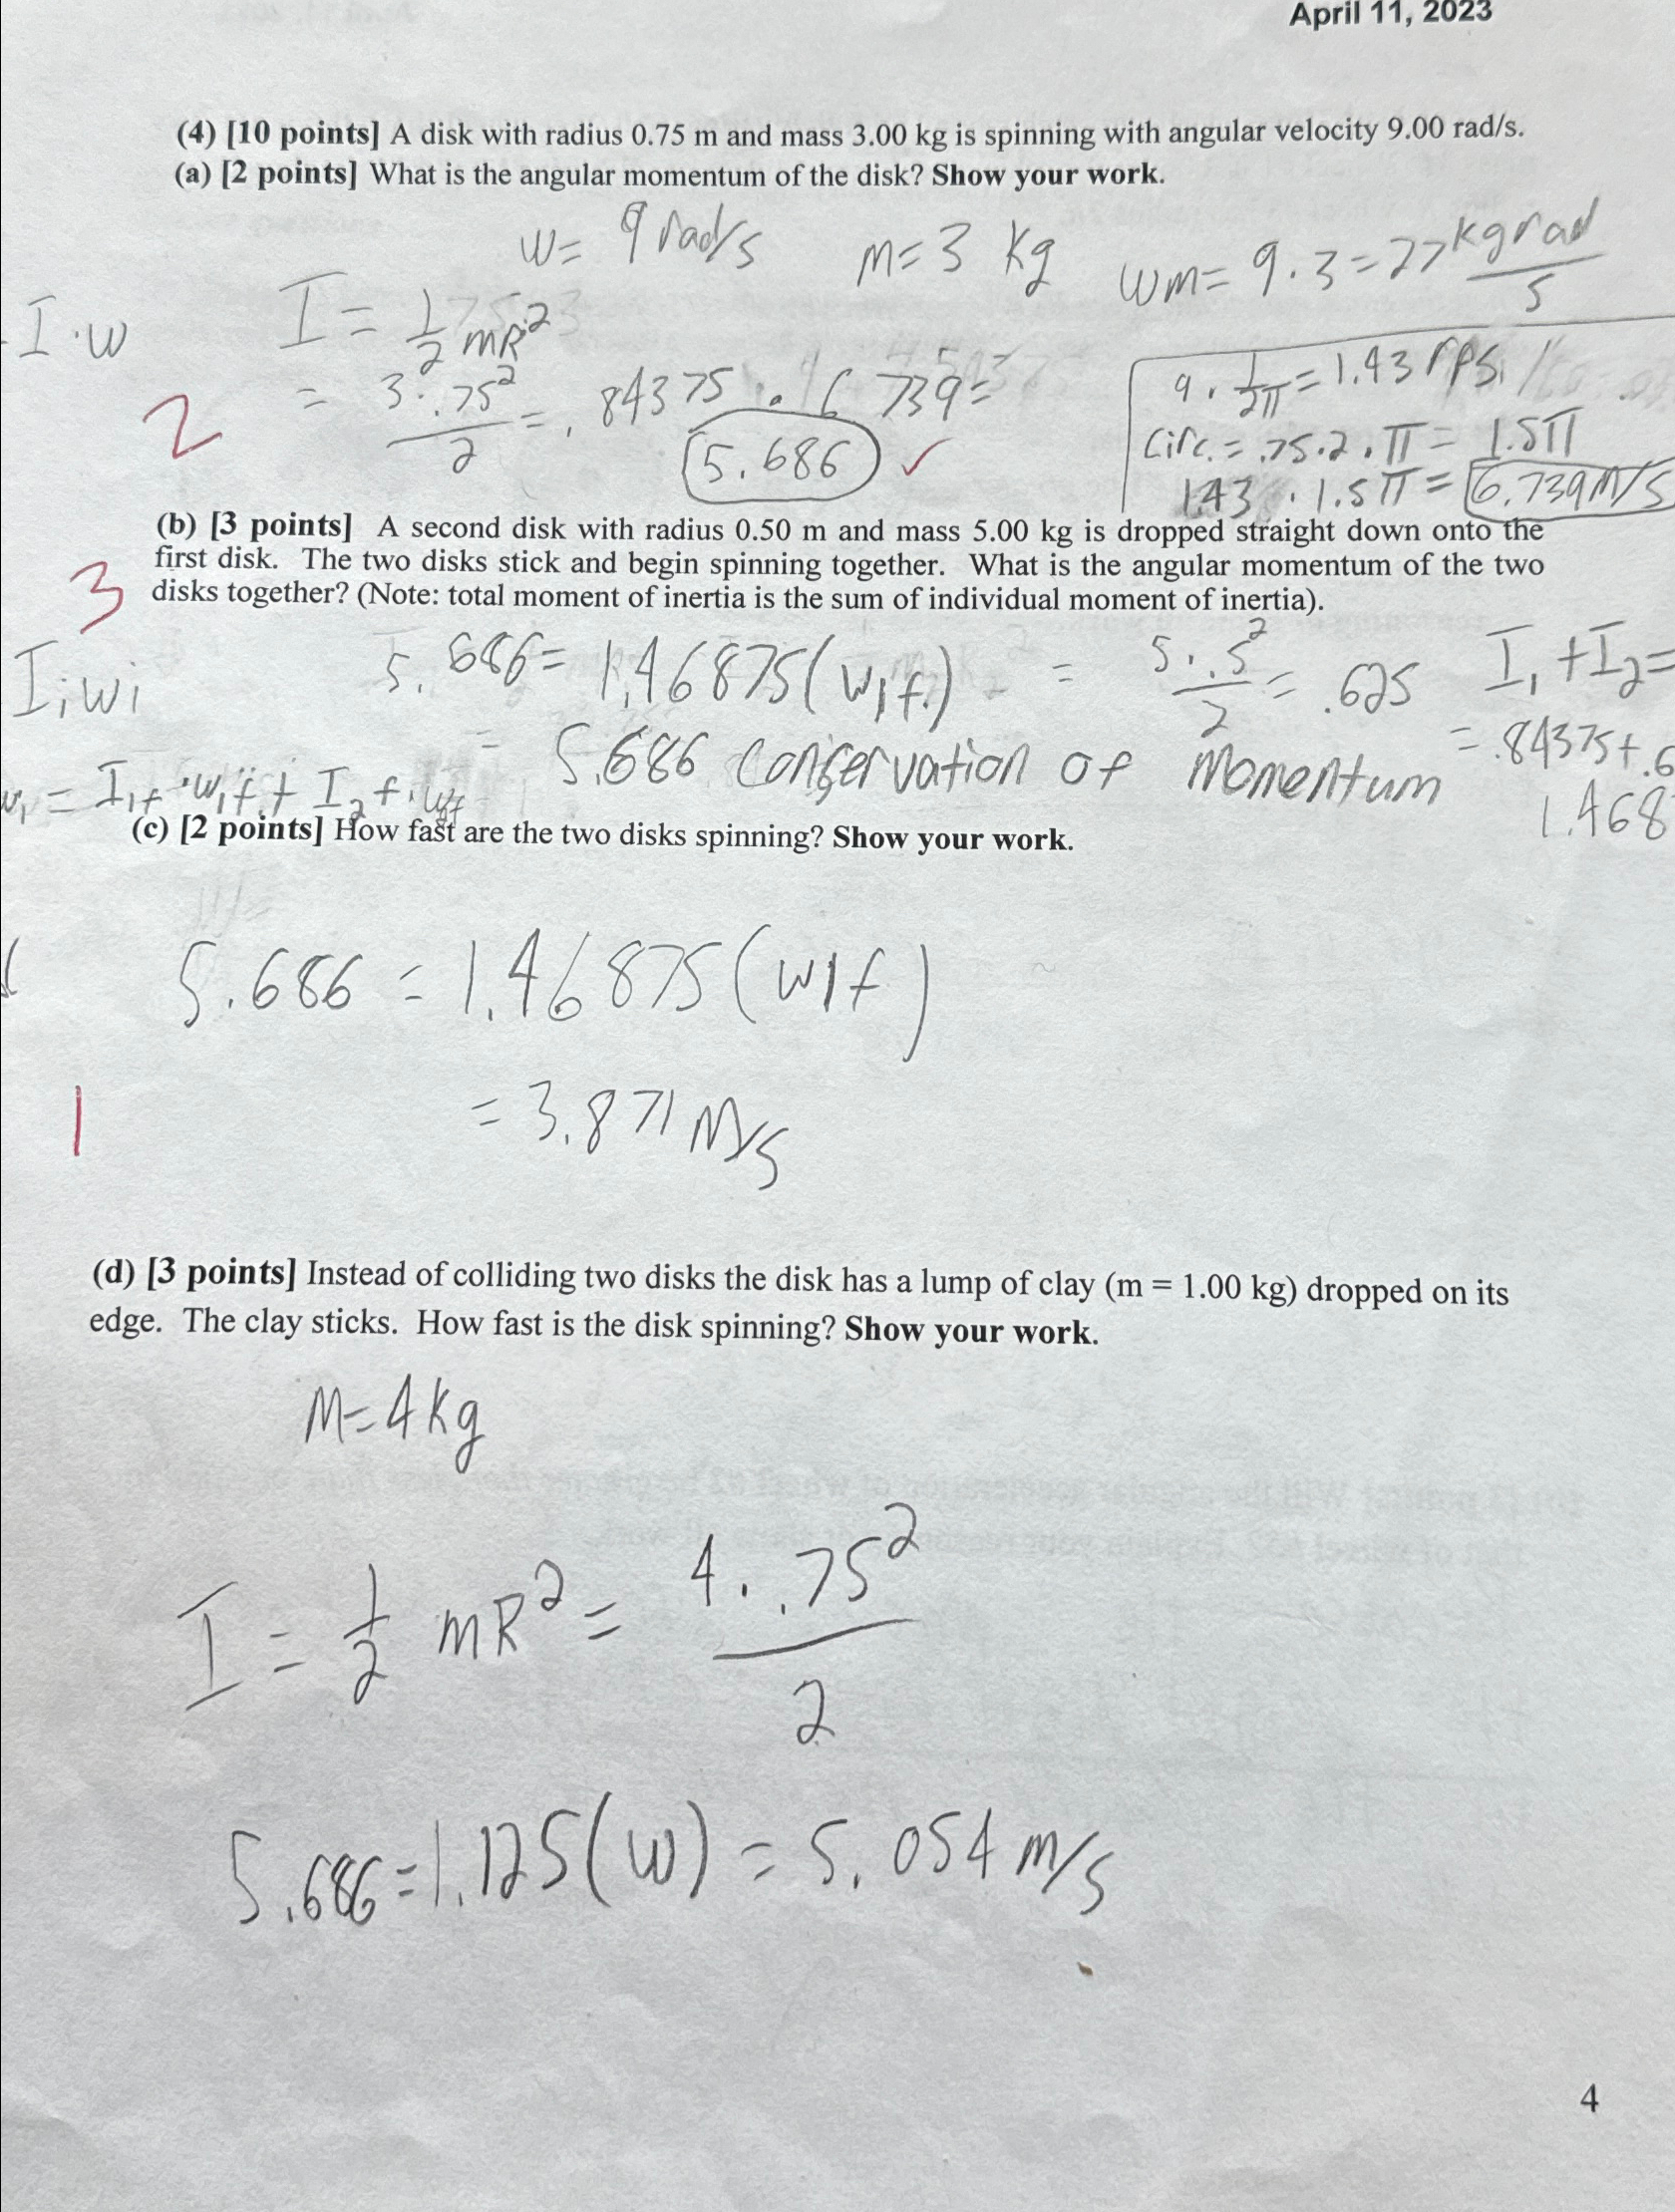 April 11, 2023
(4) [10 points] A disk with radius 0.75 m and mass 3.00 kg is spinning with angular velocity 9.00 rad/s.
(a) [2 points] What is the angular momentum of the disk? Show your work.
w = 9 rad/s m = 3 kg wm = 9 · 3 = 27 kg rad/s
I · w
I = 1/2 mR²
= 3 · .75²/2 = .84375 · 6.739 =
2
5.686 ✓
9 · 1/2π = 1.43 rps
Circ. = .75 · 2 · π = 1.5π
1.43 · 1.5π = 6.739 m/s
(b) [3 points] A second disk with radius 0.50 m and mass 5.00 kg is dropped straight down onto the
first disk. The two disks stick and begin spinning together. What is the angular momentum of the two
disks together? (Note: total moment of inertia is the sum of individual moment of inertia).
3
Iiwi
5.686 = 1.46875(w1f.) = 5 · .5²/2 = .625 I₁ + I₂ =
= 5.686 conservation of momentum
= .84375 + .6
1.468
= I1f · w1f + I2f · w
(c) [2 points] How fast are the two disks spinning? Show your work.
5.686 = 1.46875(w1f)
= 3.871 m/s
1
(d) [3 points] Instead of colliding two disks the disk has a lump of clay (m = 1.00 kg) dropped on its
edge. The clay sticks. How fast is the disk spinning? Show your work.
M = 4 kg
I = 1/2 mR² = 4 · .75²/2
5.686 = 1.125(w) = 5.054 m/s
4